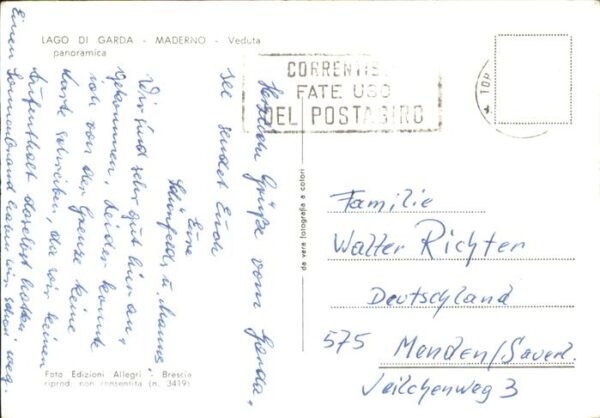 LAGO DI GARDA - MADERNO - Veduta
panoramica
CORRENTIS
FATE USO
DEL POSTAGIRO
TOR
Herzliche Grüße vom Garda-
see sendet Euch
Eure
u. Manns
Wir sind sehr gut hier an-
gekommen, leider konnte
ich von der Grenze keine
Karte schreiben, da wir keinen
Aufenthalt daselbst hatten.
Einen Sonnenbrand haben wir schon weg.
da vera fotografia a colori
Familie
Walter Richter
Deutschland
575 Menden/Sauerl.
Veilchenweg 3
Foto Edizioni Allegri - Brescia
riprod. non consentita (n. 3419)